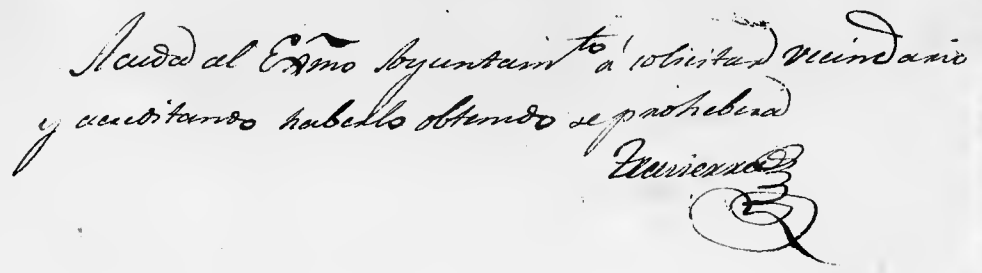 Acuda al Exmo Ayuntamto á solicitar vecindario
y acreditando haberlo obtenido se prohebera